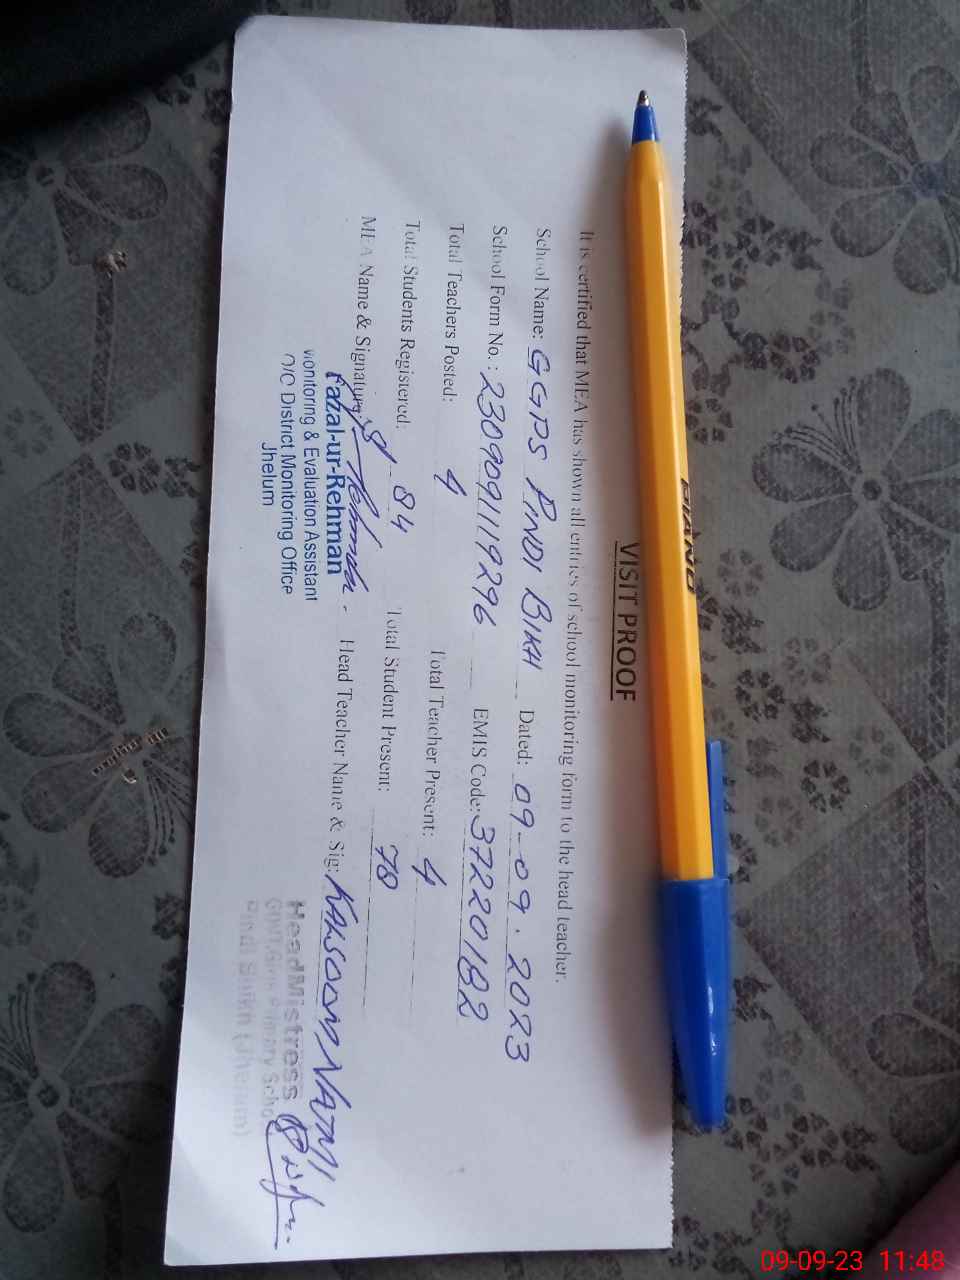 PIANO
VISIT PROOF
It is certified that MEA has shown all entries of school monitoring form to the head teacher.
School Name: GGPS PINDI BIKH Dated: 09-09.2023
School Form No.: 2309091119296 EMIS Code: 37220182
Total Teachers Posted: 4 Total Teacher Present: 4
Total Students Registered: 84 Total Student Present: 78
MEA Name & Signature: Head Teacher Name & Sig: KALSOOM
Fazal-ur-Rehman
Monitoring & Evaluation Assistant
O/O District Monitoring Office
Jhelum
HeadMistress
Govt.Girls Primary School
Pindi (Jhelum)
09-09-23 11:48